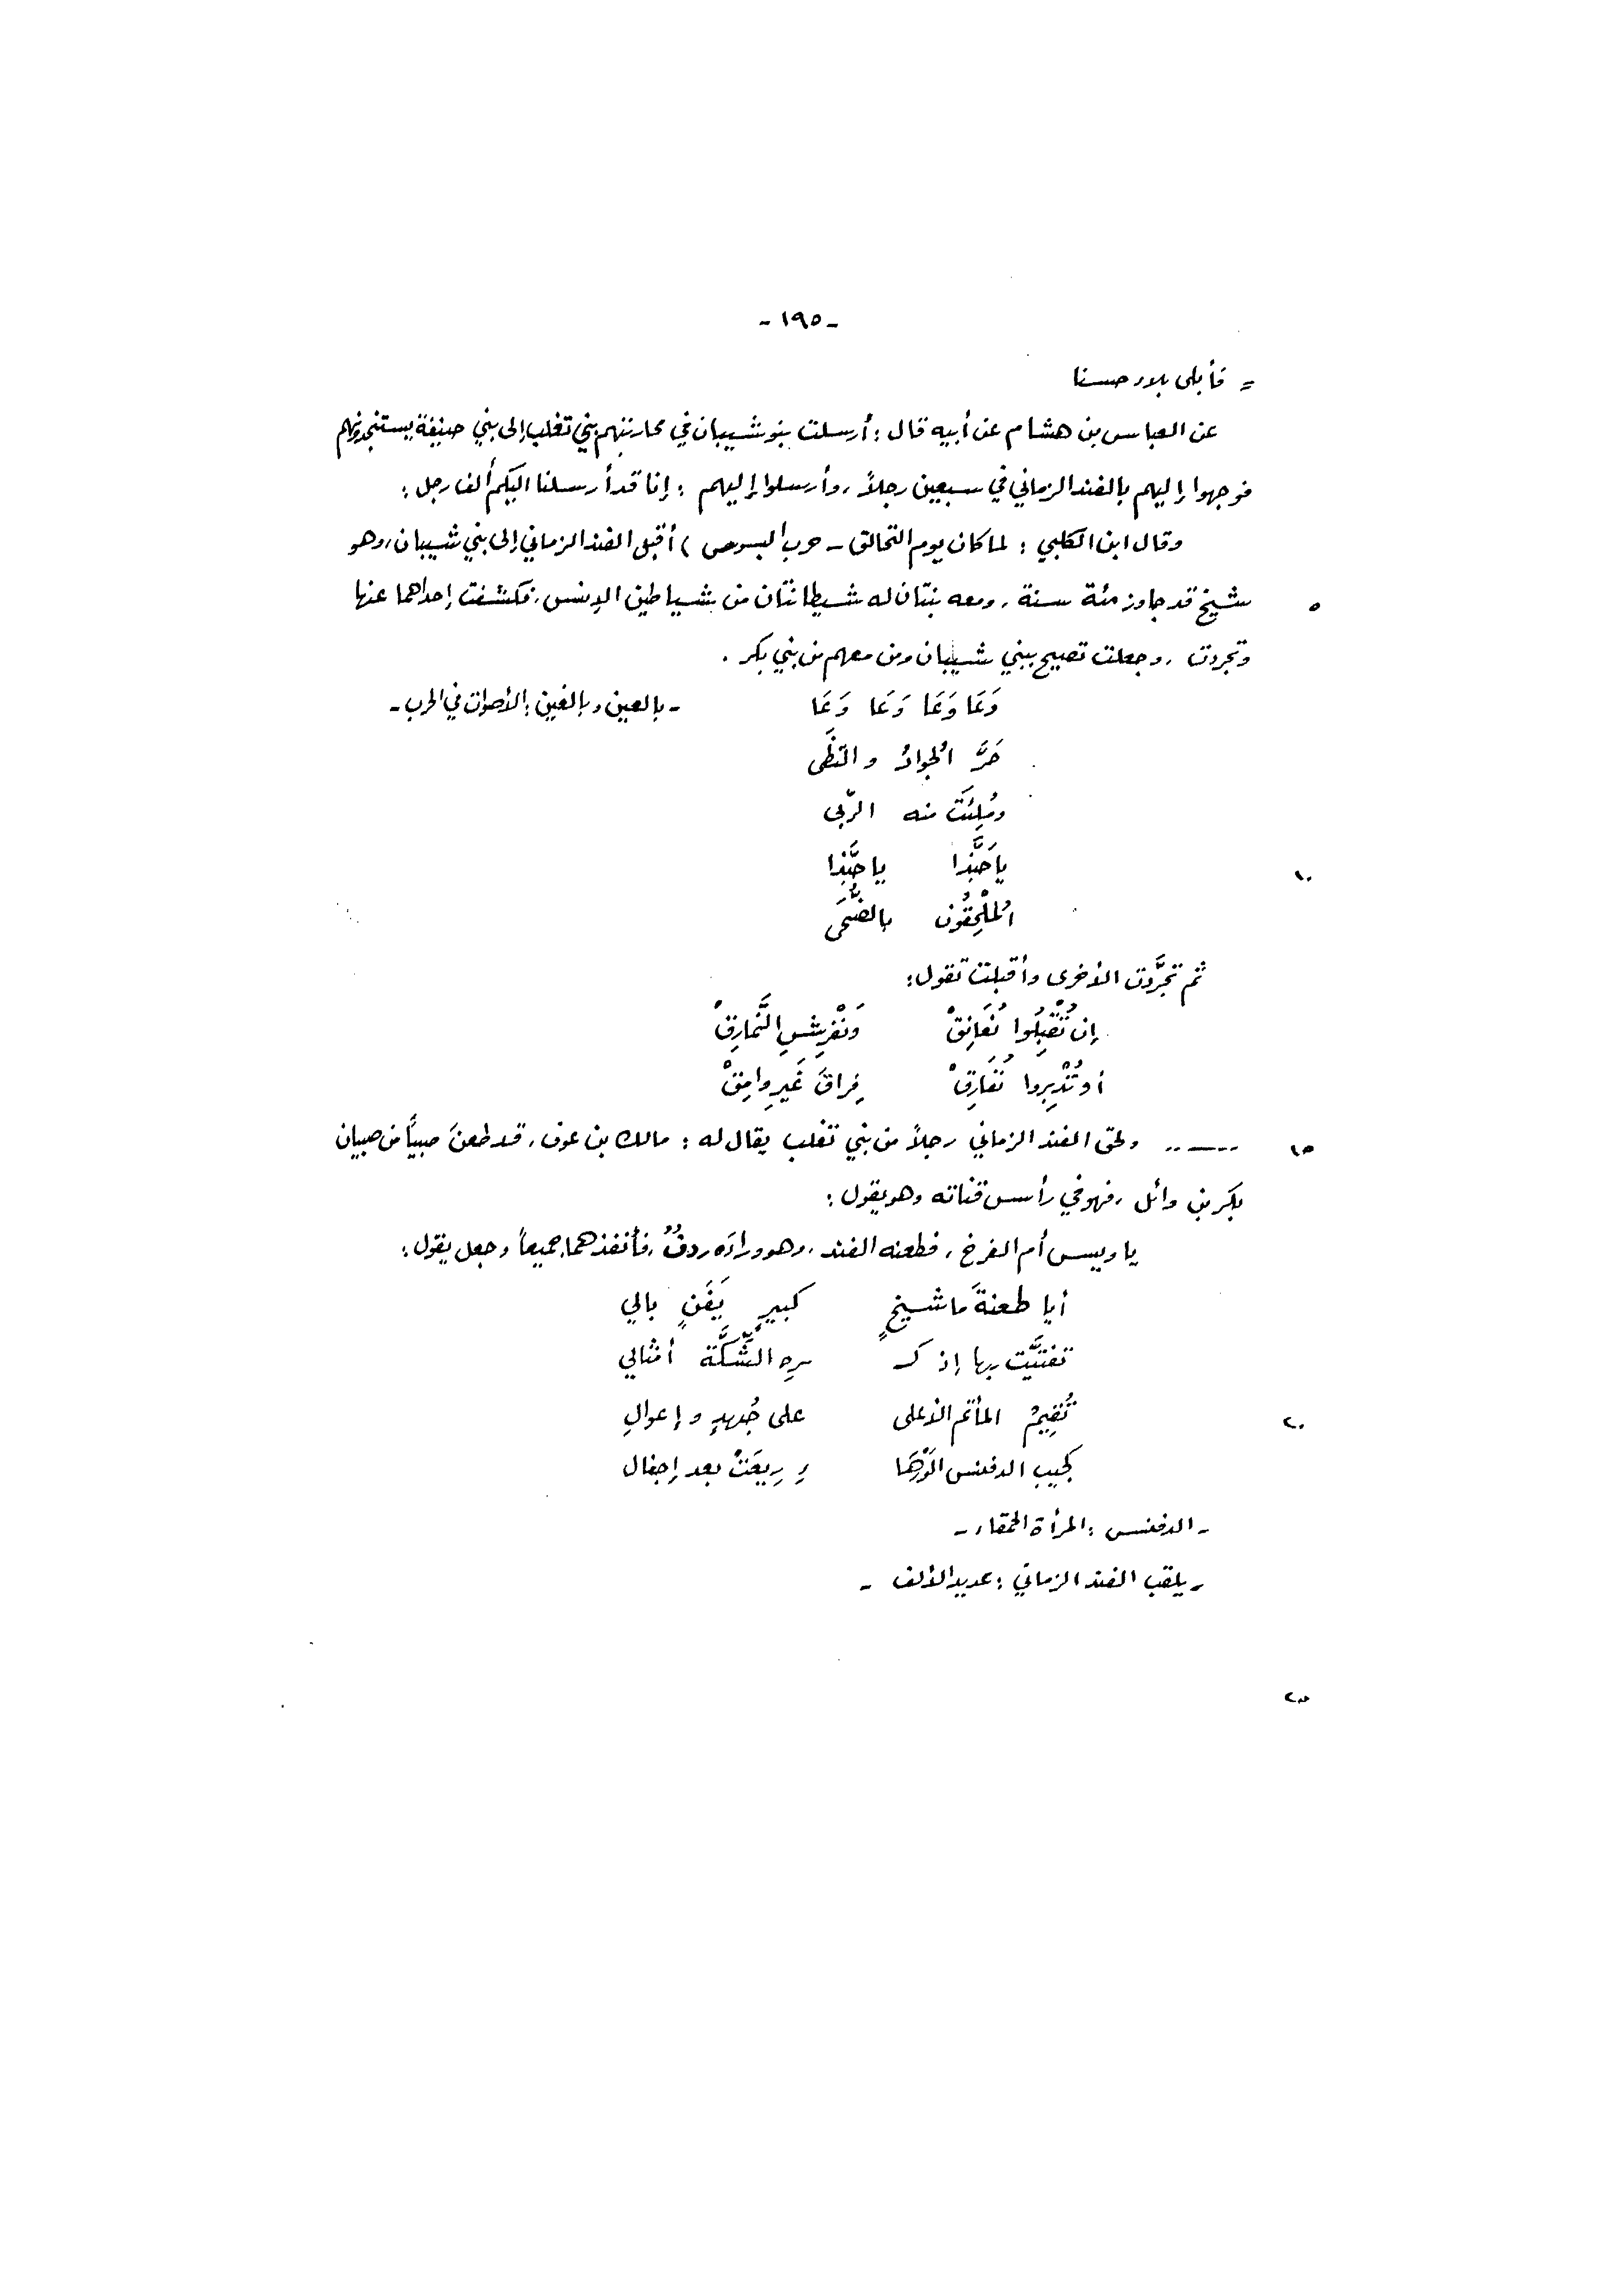 - ١٩٥ -
= فأبلى بلاء حسنا
عن العباس بن هشام عن أبيه قال : أرسلت بنو شيبان في محاربتهم بني تغلب إلى بني حنيفة يستنجدونهم
فوجهوا إليهم بالفند الزماني في سبعين رجلاً ، وأرسلوا إليهم : إنا قد أرسلنا إليكم ألف رجل :
وقال ابن الكلبي : لما كان يوم التحالق - حرب البسوس ) أقبل الفند الزماني إلى بني شيبان ، وهو
٥ شيخ قد جاوز مئة سنة ، ومعه بنتان له شيطانتان من شياطين الإنس ، فكشفت إحداهما عنها
وتجردت ، وجعلت تصيح ببني شيبان ومن معهم من بني بكر .
وَعَا وَعَا وَعَا وَعَا - بالعين وبالغين : الأصوات في الحرب -
حَرَّ الجوادُ والتظَى
ومُلِئَت منه الرّبى
١٠ يا حَبَّذا يا حبَّذا
المُلْحِقُون بالضُّحَى
ثم تجرَّدت الأخرى وأقبلت تقول :
إن تُقْبِلُوا نُعَانِقْ وَنَفْرِشِ النَّمارِقْ
أو تُدْبِروا نُفَارِقْ فِراقَ غَيرِ وامِقْ
١٥ ..—.. ولحق الفند الزماني رجلاً من بني تغلب يقال له : مالك بن عوف ، قد طعنَ صبيًّا من صبيان
بكر بن وائل ، فهو في رأس قناته وهو يقول :
يا ويس أم الفرخ ، فطعنه الفند ، وهو وراءَه ردفٌ ، فأنفذهما جميعاً وجعل يقول :
أيا طعنةَ ما شيخٍ كبيرٍ يَفَنٍ بالي
تفتَّيت بها إذ كـ ـره الشِّكَّة أمثالي
٢٠ تُقِيمُ المأتم الأعلى على جُهدٍ وإعوالِ
كجيبِ الدفنس الوَرْهَا ءِ رِيعَتْ بعد إجفال
- الدفنس : المرأة الحمقاء -
- يلقب الفند الزماني : عديد الألف -
٢٥